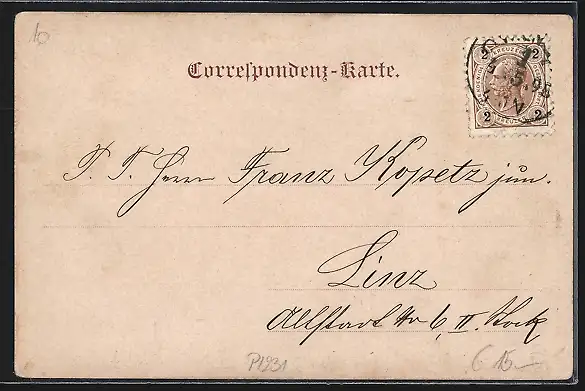 10
Correspondenz-Karte.
2 KREUZER 2
2 2
1
5. 98
P. T. Herrn Franz Kopetz jun.
Linz
Altstadt No 6, II. Stock
P1231
€ 15.—